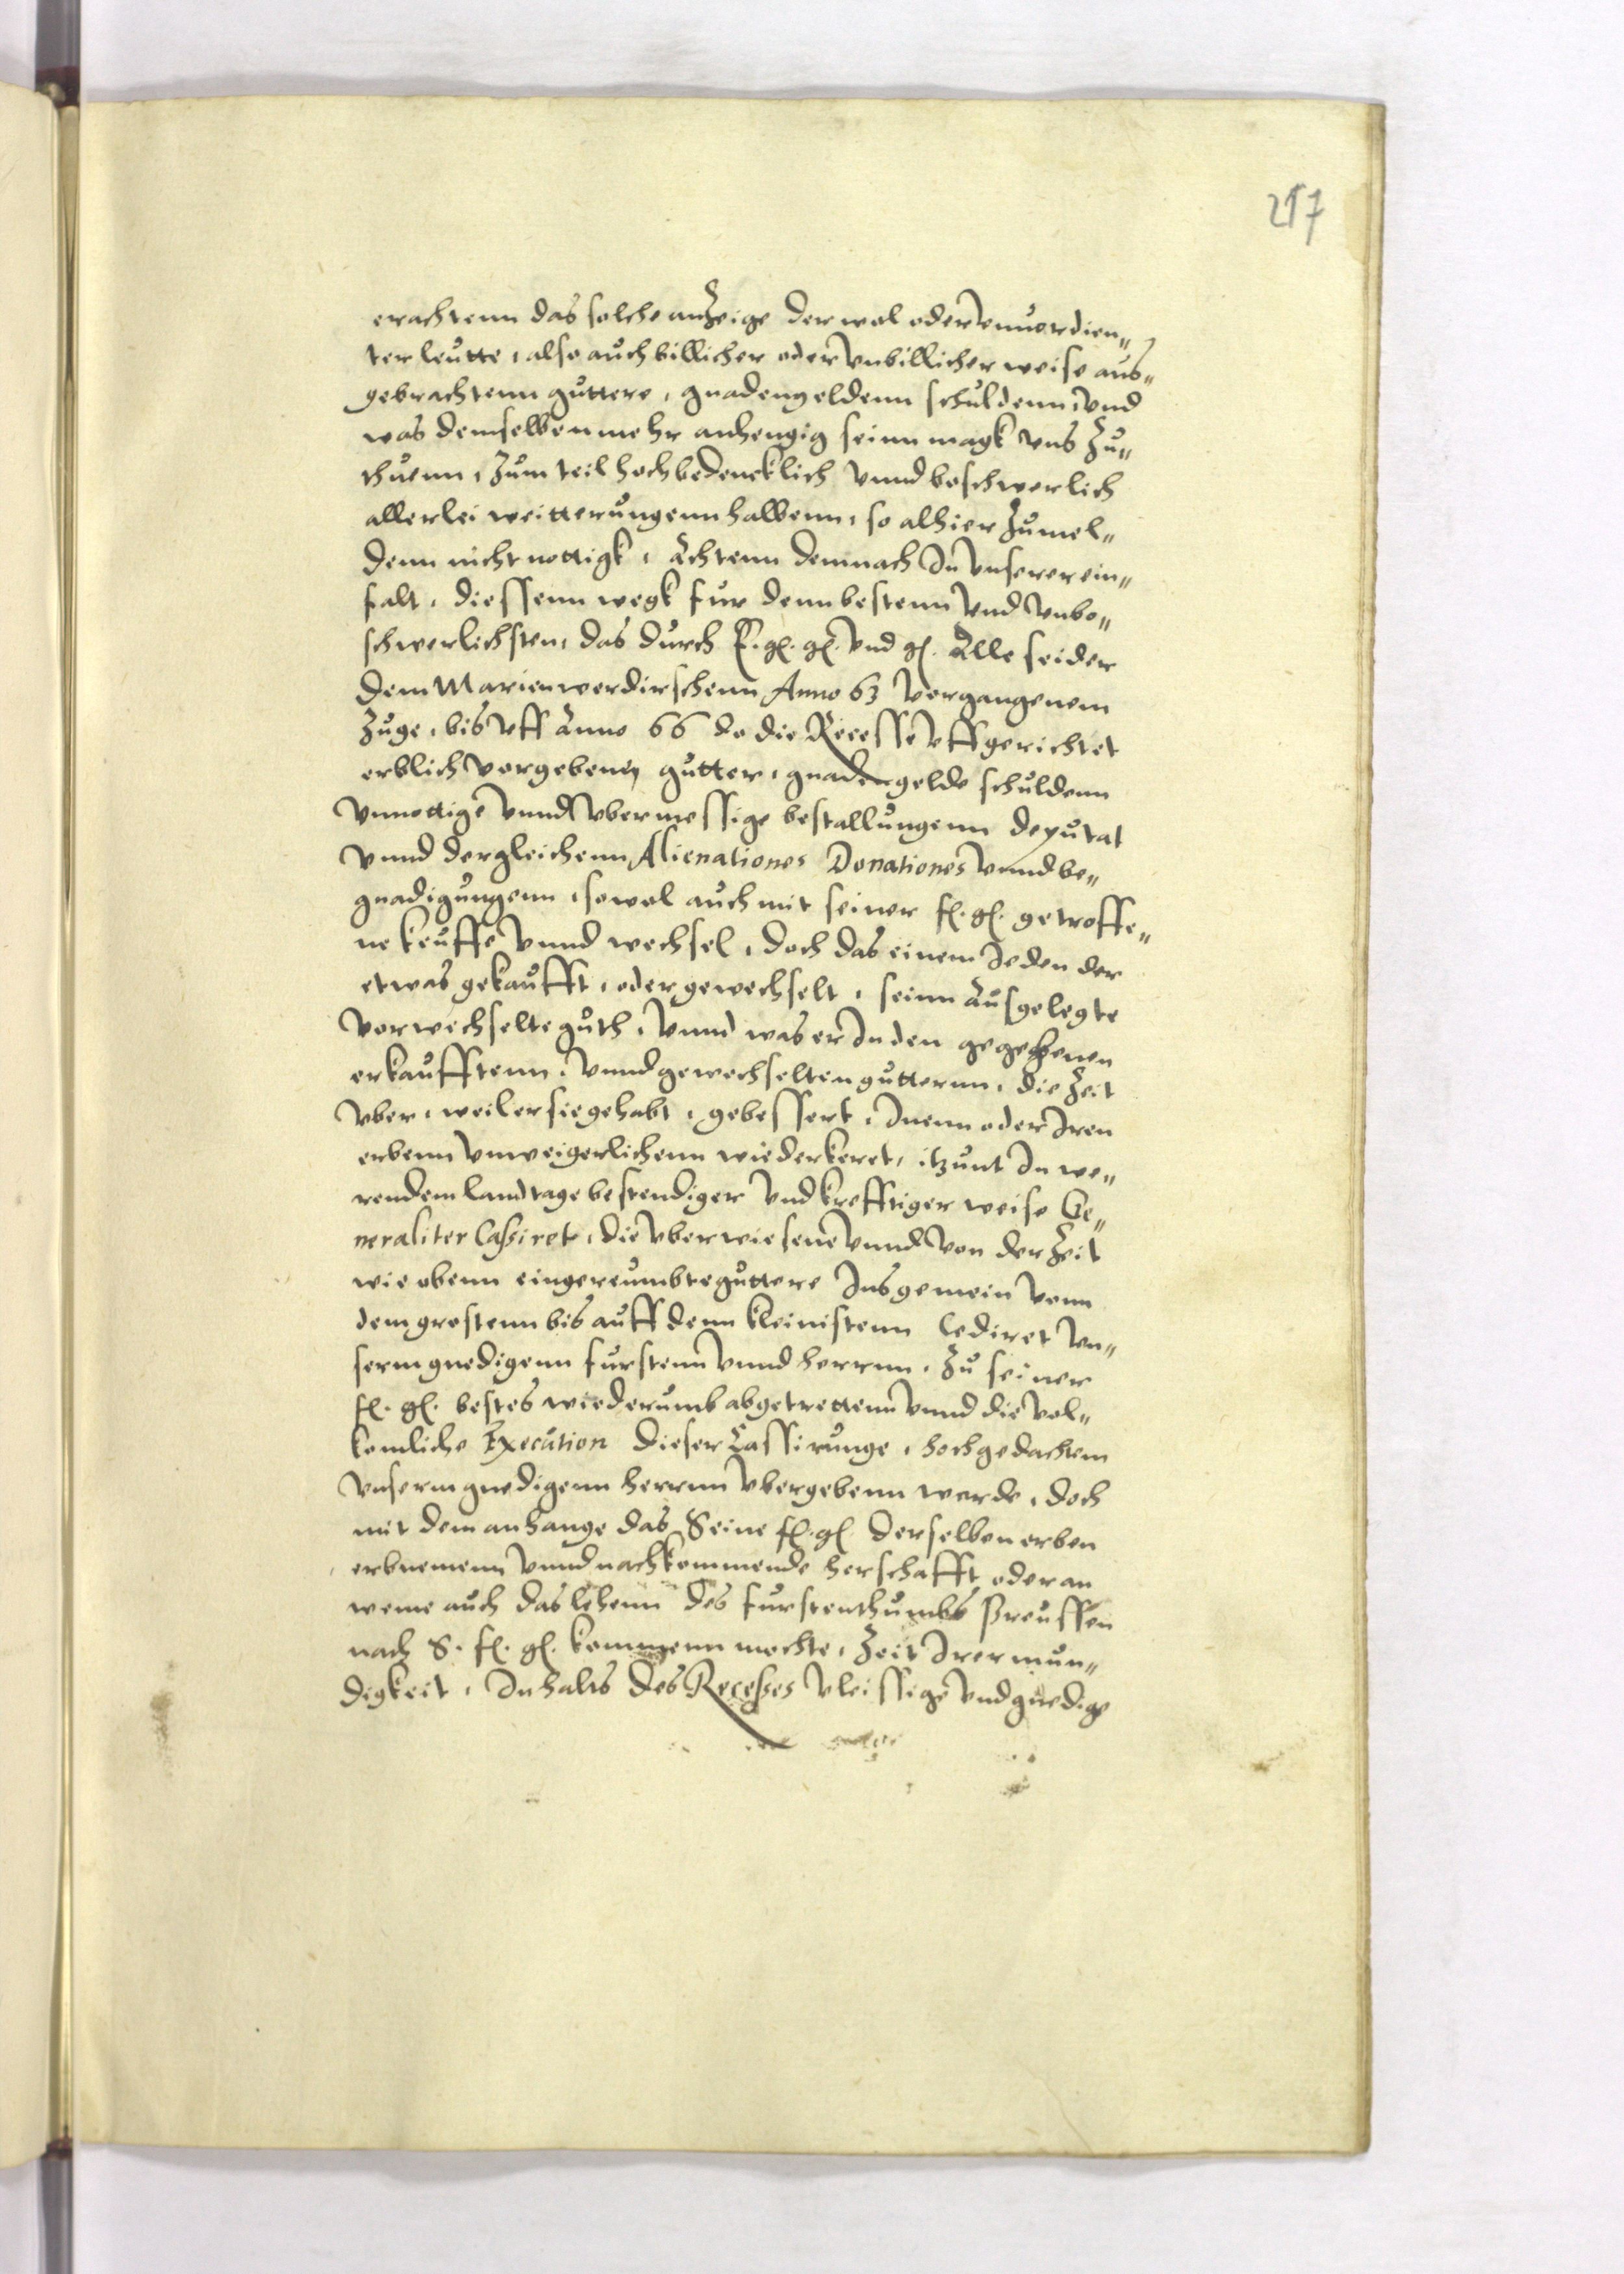 217
erachtenn das solche anzeige der wol oder vnuordien„
ter leutte, also auch billicher oder vnbillicher weise aus„
gebrachtenn guttere, gnadengeldenn schuldenn, vnd
was demselben mehr anhengig seinn magk vns zu„
thuenn, zum teil hochbedencklich vnnd beschwerlich
allerlei weitterungenn halbenn, so alhier zumel„
denn nicht nottigk, Achtenn demnach In vnserer ein„
falt, diessenn wegk fur denn bestenn vnd vnbe„
schwerlichsten, das durch E. gl. gl. vnd gl. Alle seider
dem Marienwerdirschenn Anno 63 vorgangenem
zuge, bis vff Anno 66 do die Recesse vffgerichtet
erblich vorgebenen gutter, gnadengelde schuldenn
vnnottige vnnd vbermessige bestallungenn deputat
vnnd dergleichenn Alienationes Donationes vnnd be„
gnadigungenn, sowol auch mit seiner fl. gl. getroffe„
ne keuffe vnnd wechsel, doch das einem Jeden der
etwas gekaufft, oder gewechselt, seinn Ausgelegte
vorwechselte guth, vnnd was er In den gegebenen
erkaufftenn, vnnd gewechselten gutternn, die zeit
vber, weil er sie gehabt, gebessert, Inenn oder Iren
erbenn vnweigerlichenn wiederkeret, itzunt In we„
rendem landtage bestendiger vnd krefftiger weise Ge„
neraliter Cassiret, die vberwiesene vnnd von der zeit
wie obenn eingereumbte guttere Ins gemein vonn
dem grostenn bis auff denn kleinistenn Cediret vn„
serm gnedigenn furstenn vnnd herrnn, zu seiner
fl. gl. bestes wiederumb abgetrettenn vnnd die vol„
komliche Execution dieser Cassirunge, hochgedachtem
vnserm gnedigenn herrnn vbergebenn werde, doch
mit dem anhange das Seine fl. gl. derselben erben
erbnemenn vnnd nachkommende herschafft oder an
weme auch das lehenn des furstenthumbs Preussen
nach S. fl. gl. kommenn mochte, zeit Irer mun„
digkeit, Inhalts des Recesses vleissige vnd gnedige